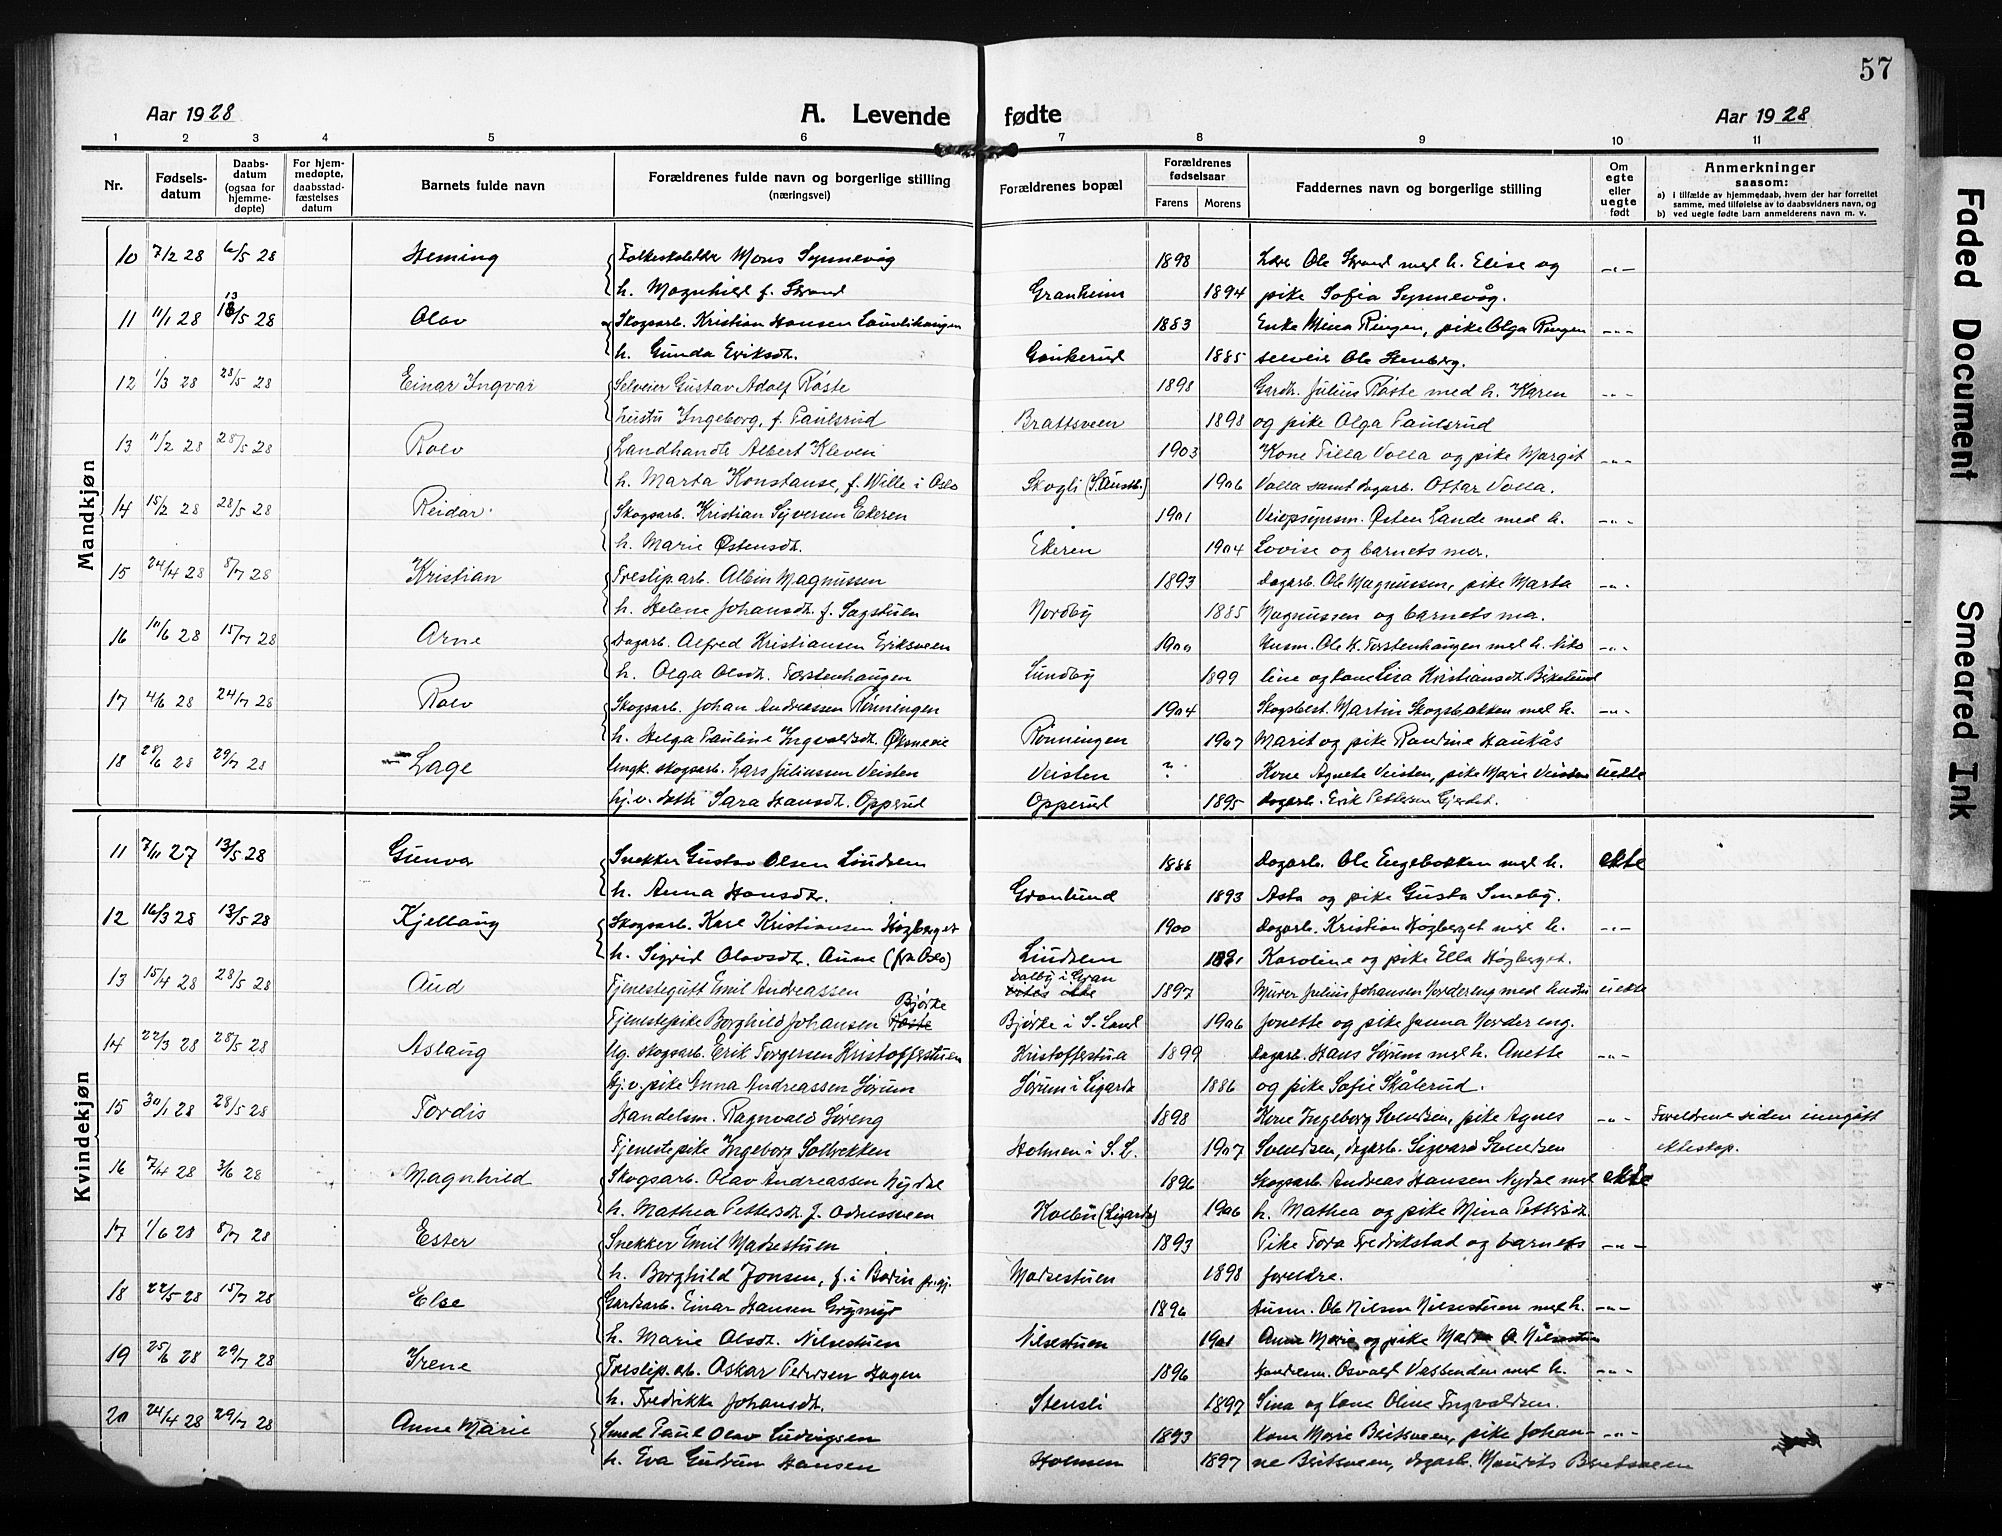 57
Aar 1928 A. Levende fødte Aar 1928
1 2 3 4 5 6 7 8 9 10 11
Nr. Fødselsdatum Daabsdatum (ogsaa for hjemmedøpte) For hjemmedøpte, daabsstadfæstelses datum Barnets fulde navn Forældrenes fulde navn og borgerlige stilling (næringsvei) Forældrenes bopæl Forældrenes fødselsaar Farens Morens Faddernes navn og borgerlige stilling Om egte eller uegte født Anmerkninger saasom:
a) i tilfælde av hjemmedaab, hvem der har forrettet samme, med tilføielse av to daabsvidners navn, og
b) ved uegte fødte barn anmelderens navn m. v.
Mandkjøn
10 7/2 28 6/5 28 Heming Mons Synnevåg 1898 Lær. Ole Strand med h. Elise og -"-
h. Magnhild f. Strand Granheim 1894 pike Sofia Synnevåg.
11 11/1 28 13/5 28 Olav Skogsarb. Kristian Hansen 1883 Enke Mina Ringen, pike Olga Ringen -"-
h. Gunda Eriksdt. Gaukerud 1885 selveier Ole Stenberg.
12 1/3 28 28/5 28 Einar Ingvar Selveier Gustav Adolf Røste 1898 Gardbr. Julius Røste med h. Karen -"-
hustru Ingeborg, f. Paulsrud Brattsveen 1898 og pike Olga Paulsrud
13 11/2 28 28/5 28 Rolv Landhandle Albert Kleven 1903 Kone Tilla Volla og pike Margit -"-
h. Marta Konstanse, f. Wille i Oslo Skogli 1906 Volla samt dagarb. Ottar Volla.
14 15/2 28 28/5 28 Reidar Skogsarb. Kristian Syversen Ekeren 1901 Veiopsynsm. Østen Lande med h. -"-
h. Marie Østensdt. Ekeren 1904 Lovise og barnets mor.
15 24/4 28 8/7 28 Kristian Treslip.arb. Albin Magnussen 1893 Dagarb. Ole Magnussen, pike Marta -"-
h. Helene Johansdt. f. Sagstuen Nordby 1885 Magnussen og barnets mor.
16 11/6 28 15/7 28 Arne Dagarb. Alfred Kristiansen Eriksveen 1900 Husm. Ole K. Torstenhaugen med h. Niko -"-
h. Olga Olsdt. Torstenhaugen Lundby 1899 line og kone Lisa Kristiansdt. Birkelund
17 4/6 28 24/7 28 Rolv Skogsarb. Johan Andreassen Rønningen 1904 Skogsbest. Martin Skogsbakken med h. -"-
h. Helga Pauline Ingvaldsdt. Øksneeie Rønningen 1907 Marit og pike Randine Haukås
18 28/6 28 29/7 28 Lage Ungk. skogsarb. Lars Juliussen Veisten Veisten ? Kone Agnete Veisten, pike Marie Veisten uekte
hj.v. datter Sara Hansdt. Opperud Opperud 1895 Dagarb. Erik Pettersen Gjerdet.
Kvindekjøn
11 7/11 27 13/5 28 Gunvor Snekker Gustav Olsen Lundsem 1888 Dagarb. Ole Engebakken med h. ekte
h. Anna Hansdt. Granlund 1893 Asta og pike Gusta Smeby.
12 16/3 28 13/5 28 Kjellaug Skogsarb. Karl Kristiansen Høgberget 1900 Dagarb. Kristian Høgberget med h. -"-
h. Sigrid Olavsdt. Aune (fra Oslo) Lundsem Karoline og pike Ella Høgberget.
13 15/4 28 28/5 28 Aud Tjenestegutt Emil Andreassen Dalby i Gran 1897 Murer Julius Johansen Nordereng med hustru uekte
Tjenestepike Borghild Johansen Bjørke Bjørke i S. Land 1906 Jonette og pike Janna Nordereng.
14 22/3 28 28/5 28 Aslaug Ug. skogsarb. Erik Torgersen Kristoffestuen Kristoffestua 1899 Dagarb. Hans Sørum med h. Anette -"-
hj.v. pike Anna Andreassen Sørum Sørum i Ligarda 1886 og pike Sofie Skålerud.
15 30/1 28 28/5 28 Tordis Handelsm. Ragnvald Søreng 1898 Kone Ingeborg Svendsen, pike Agnes -"- Foreldrene siden inngått
Tjenestepike Ingeborg Solbrekken Holmen i S. L. 1907 Svendsen, dagarb. Sigvard Svendsen ekteskap.
16 7/4 28 3/6 28 Magnhild Skogsarb. Olav Andreassen Nydal 1896 Skogsarb. Andreas Hansen Nydal med ekte
h. Mathea Pettersdt. f. Odnessveen Kolbu (Ligarda) 1906 h. Mathea og pike Mina Pettersdt.
17 1/6 28 8/7 28 Ester Snekker Emil Madsestuen 1893 Pike Tora Fredrikstad og barnets -"-
h. Borghild Jonsen, f. i Bodin Madsestuen 1898 foreldre.
18 22/5 28 15/7 28 Else Gardsarb. Einar Hansen 1896 Husm. Ole Nilsen Nilsestuen med h. -"-
h. Marie Olsdt. Nilsestuen Nilsestuen 1901 Anne Marie og pike O. Nilsestuen
19 25/6 28 29/7 28 Irene Treslip.arb. Oskar Pedersen Hagen 1896 Handelsm. Osvald Vassenden med h. -"-
h. Fredrikke Johansdt. Stensli 1897 Sina og kone Oline Ingvaldsen.
20 24/4 28 29/7 28 Anne Marie Smed Paul Olav Ludvigsen 1893 Kone Marie Britsveen, pike Johan- -"-
h. Eva Gudrun Hansen Holmen 1897 ne Britsveen, dagarb. Maurits Britsveen
Faded Document
Smeared Ink